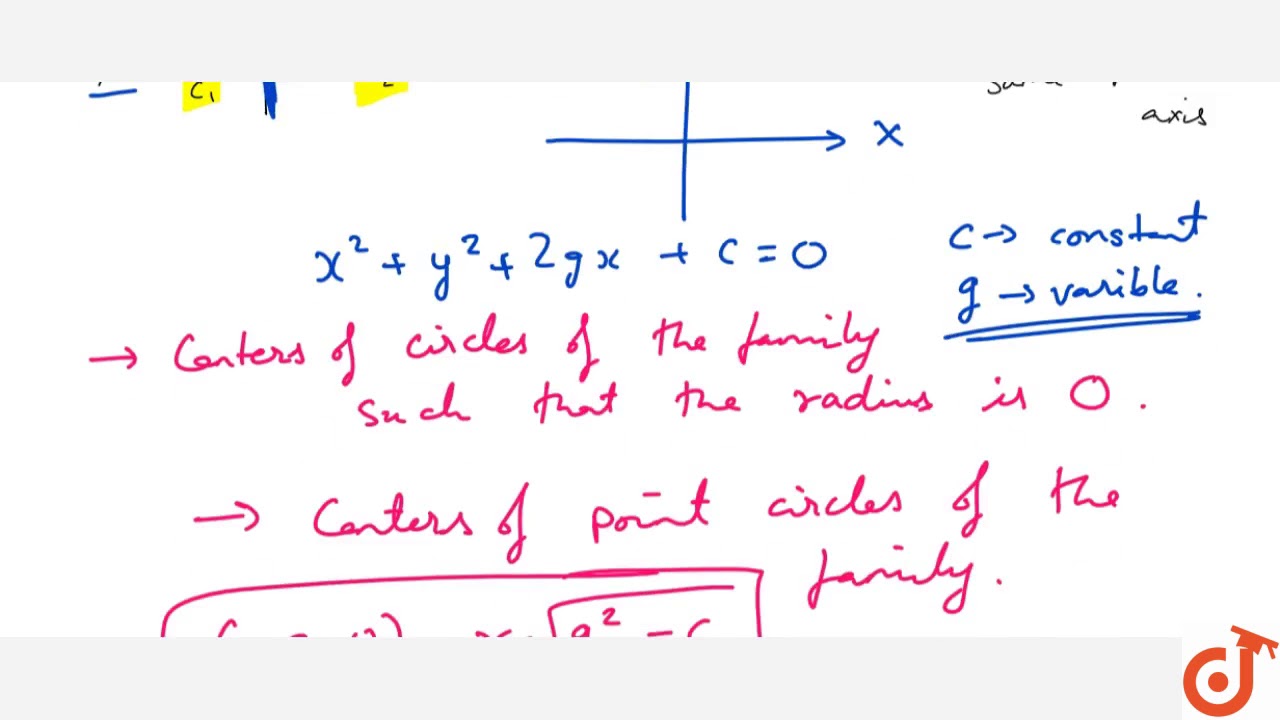 C₁
axis
X
x² + y² + 2gx + c = 0
c → constant
g → varible.
→ Centers of circles of the family
such that the radius is 0.
→ Centers of point circles of the
family.